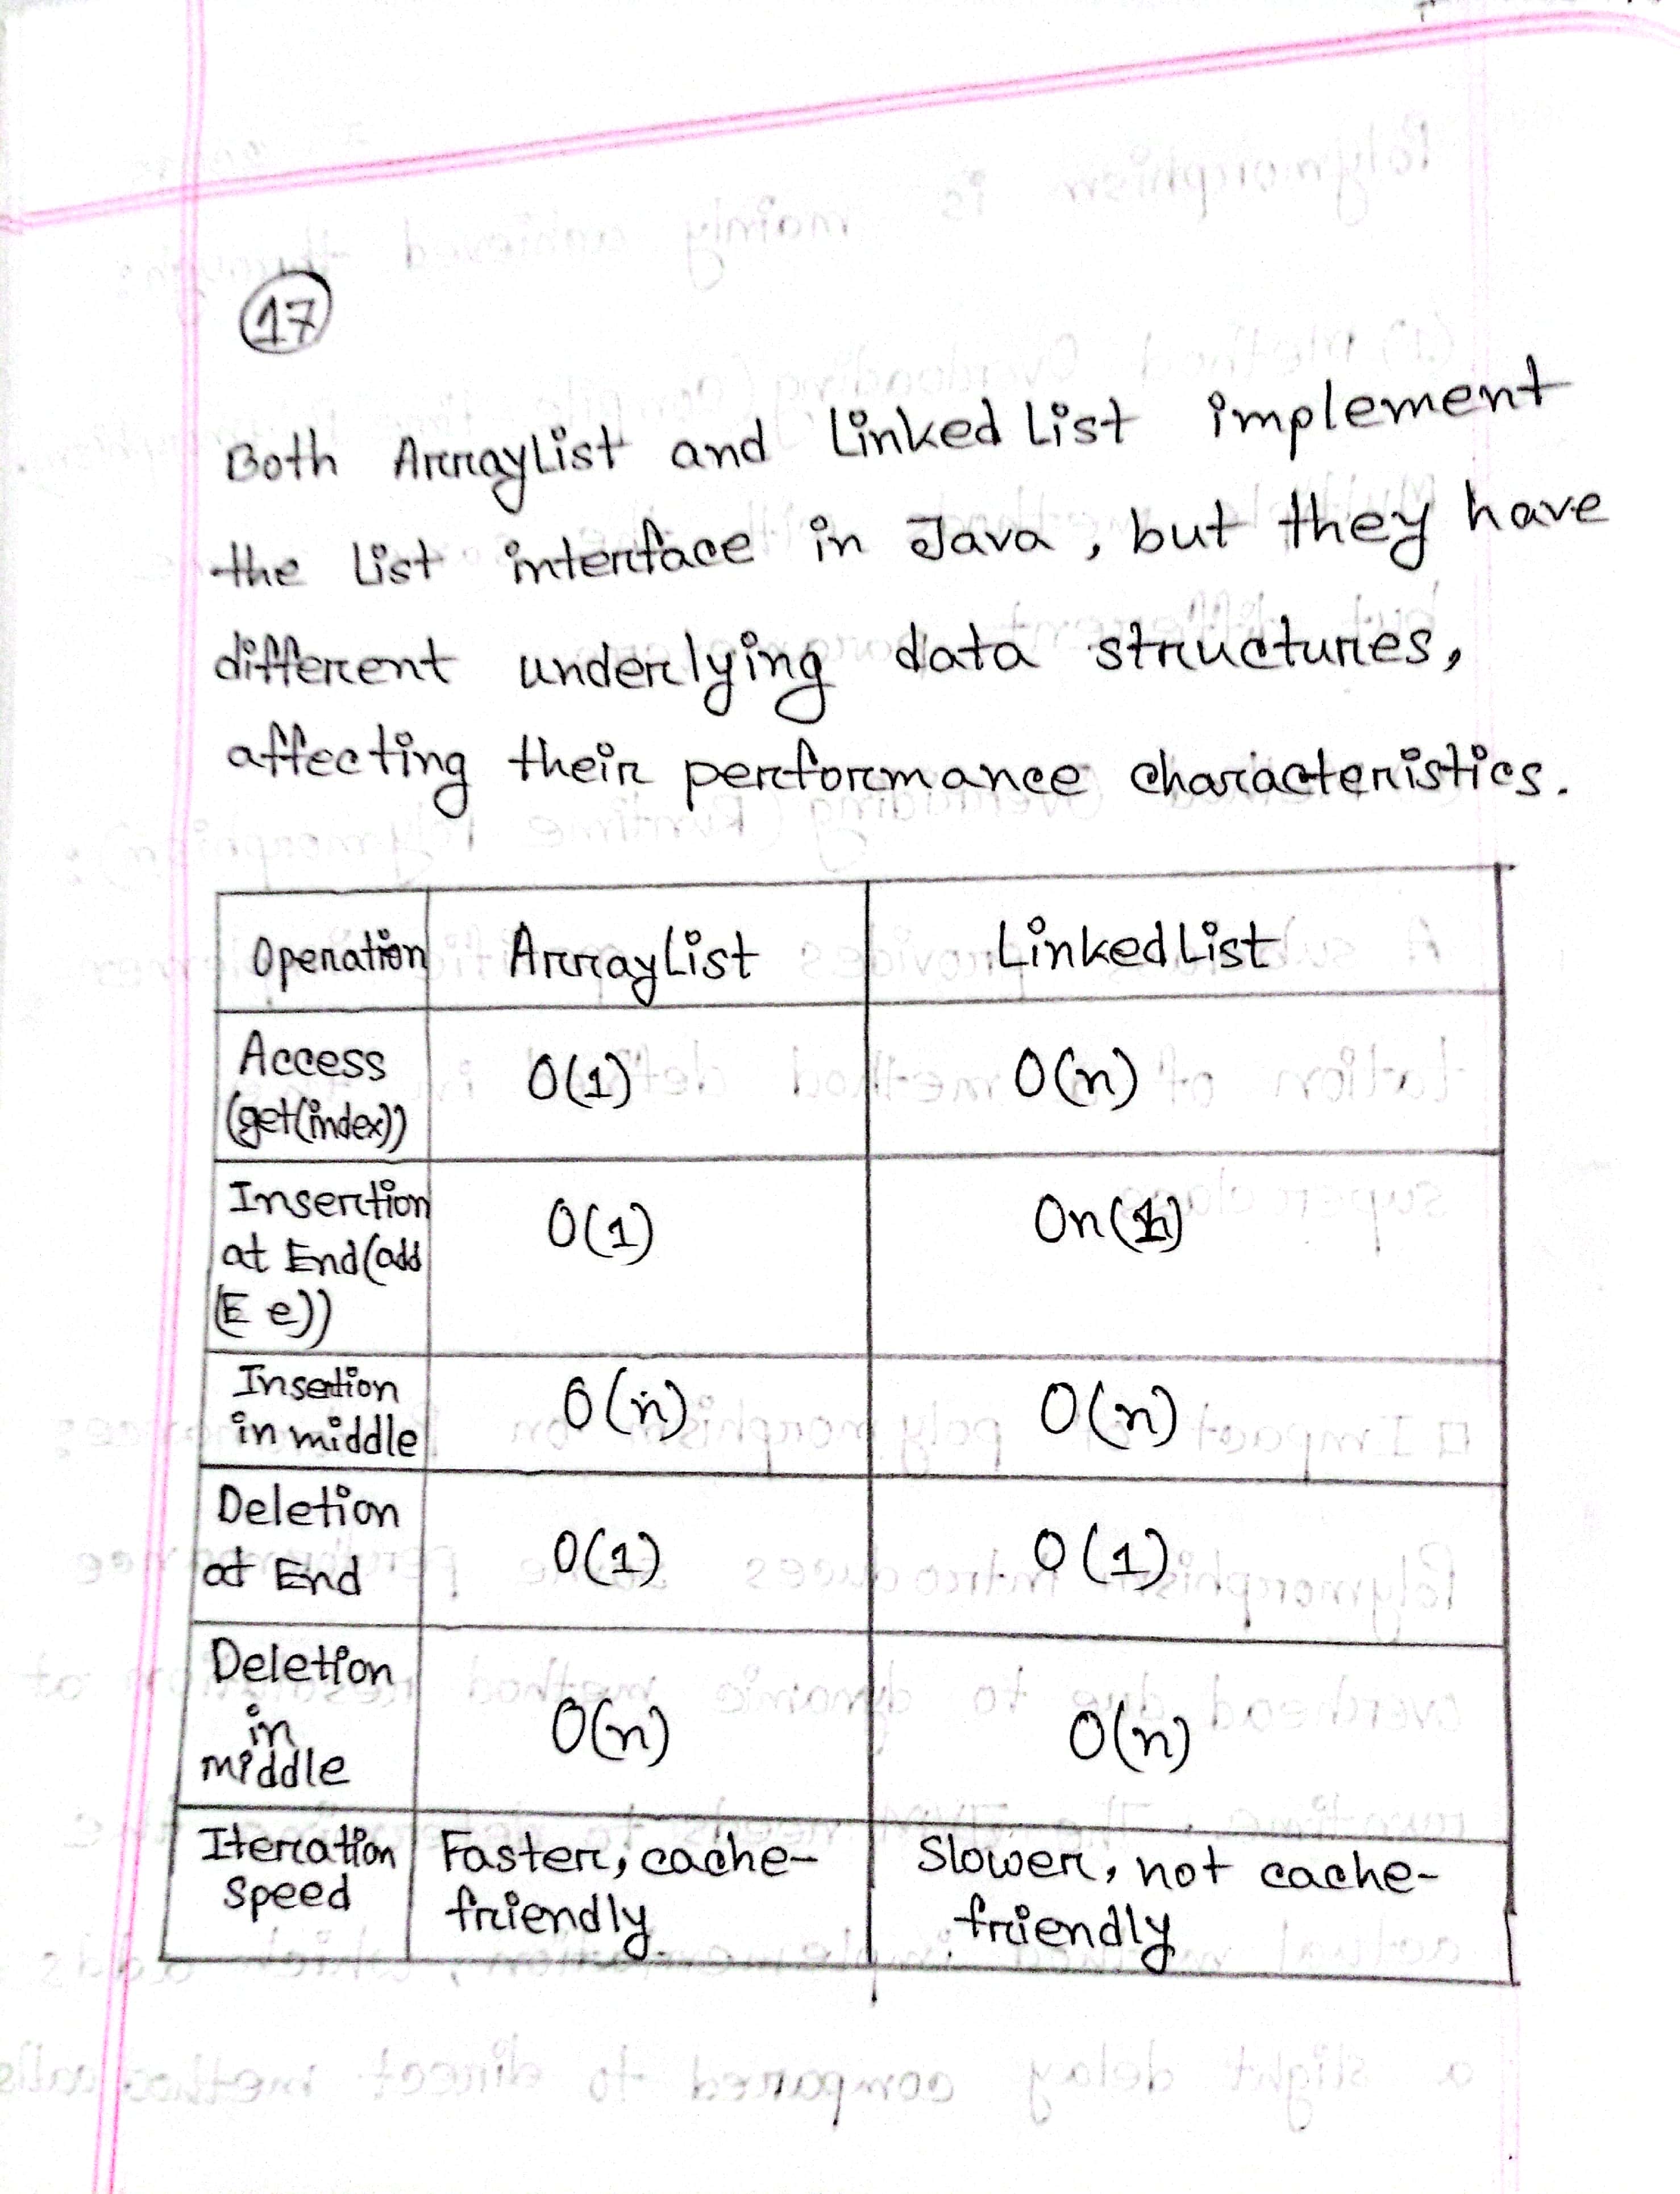 17
Both ArrayList and Linked List implement
the List interface in Java, but they have
different underlying data structures,
affecting their performance characteristics.
Operation ArrayList LinkedList
Access
(get(index))
O(1) O(n)
Insertion
at End(add
(E e))
O(1) On(1)
Insetion
in middle
O(n) O(n)
Deletion
at End
O(1) O(1)
Deletion
in
middle
O(n) O(n)
Iteration
speed
Faster, cache-
friendly
Slower, not cache-
friendly